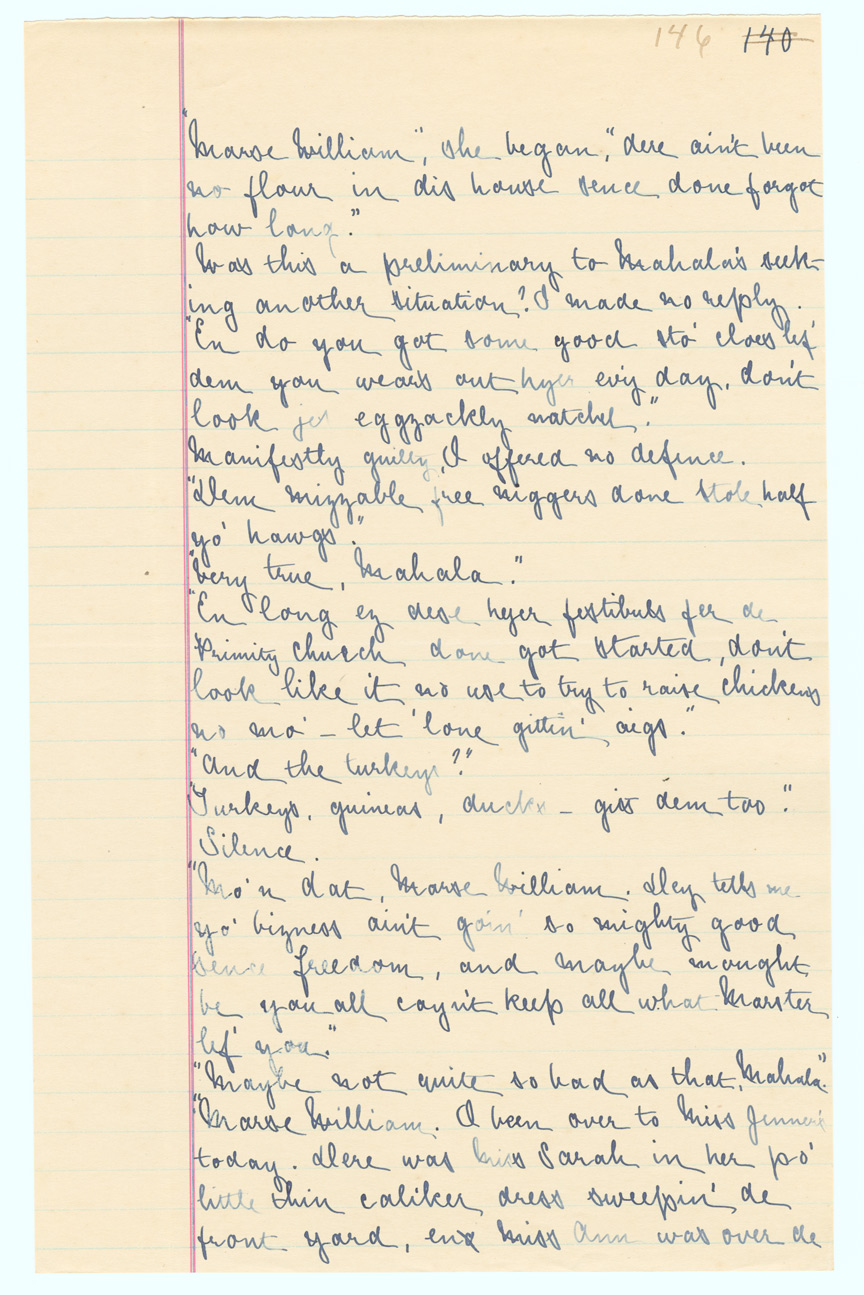 146 140
"Marse William", she began, "dere ain't been
no flour in dis house sence done forgot
how long."
Was this a preliminary to Mahala's seek-
ing another situation? I made no reply.
"En do you got some good sto' cloes lef'
dem you wears out hyer ev'y day, don't
look jes eggzackly natchel."
Manifestly guilty, I offered no defence.
"Dem mizzable free niggers done stole half
yo' hawgs."
"Very true, Mahala."
"En long ez dese hyer festibuls fer de
Primity church done got started, don't
look like it no use to try to raise chickens
no mo' – let 'lone gittin' aigs."
"And the turkeys?"
"Turkeys, guineas, ducks – giss dem too."
Silence.
"Mo'n dat, Marse William. Dey tells me
yo' bizness ain't goin' so mighty good
sence freedom, and maybe mought
be you all cayn't keep all what Marster
lef' you."
"Maybe not quite so bad as that, Mahala."
"Marse William. I been over to Miss Jenner's
today. Dere was Miss Sarah in her po'
little thin caliker dress sweepin' de
front yard, en Miss Ann was over de